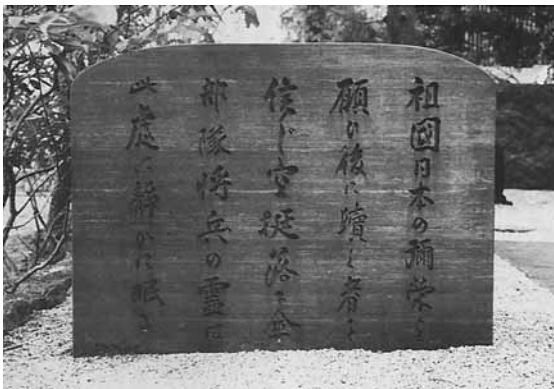 祖國日本の彌栄を
願ひ後に續く者を
信じ空挺落下傘
部隊将兵の霊は
此處に静かに眠る